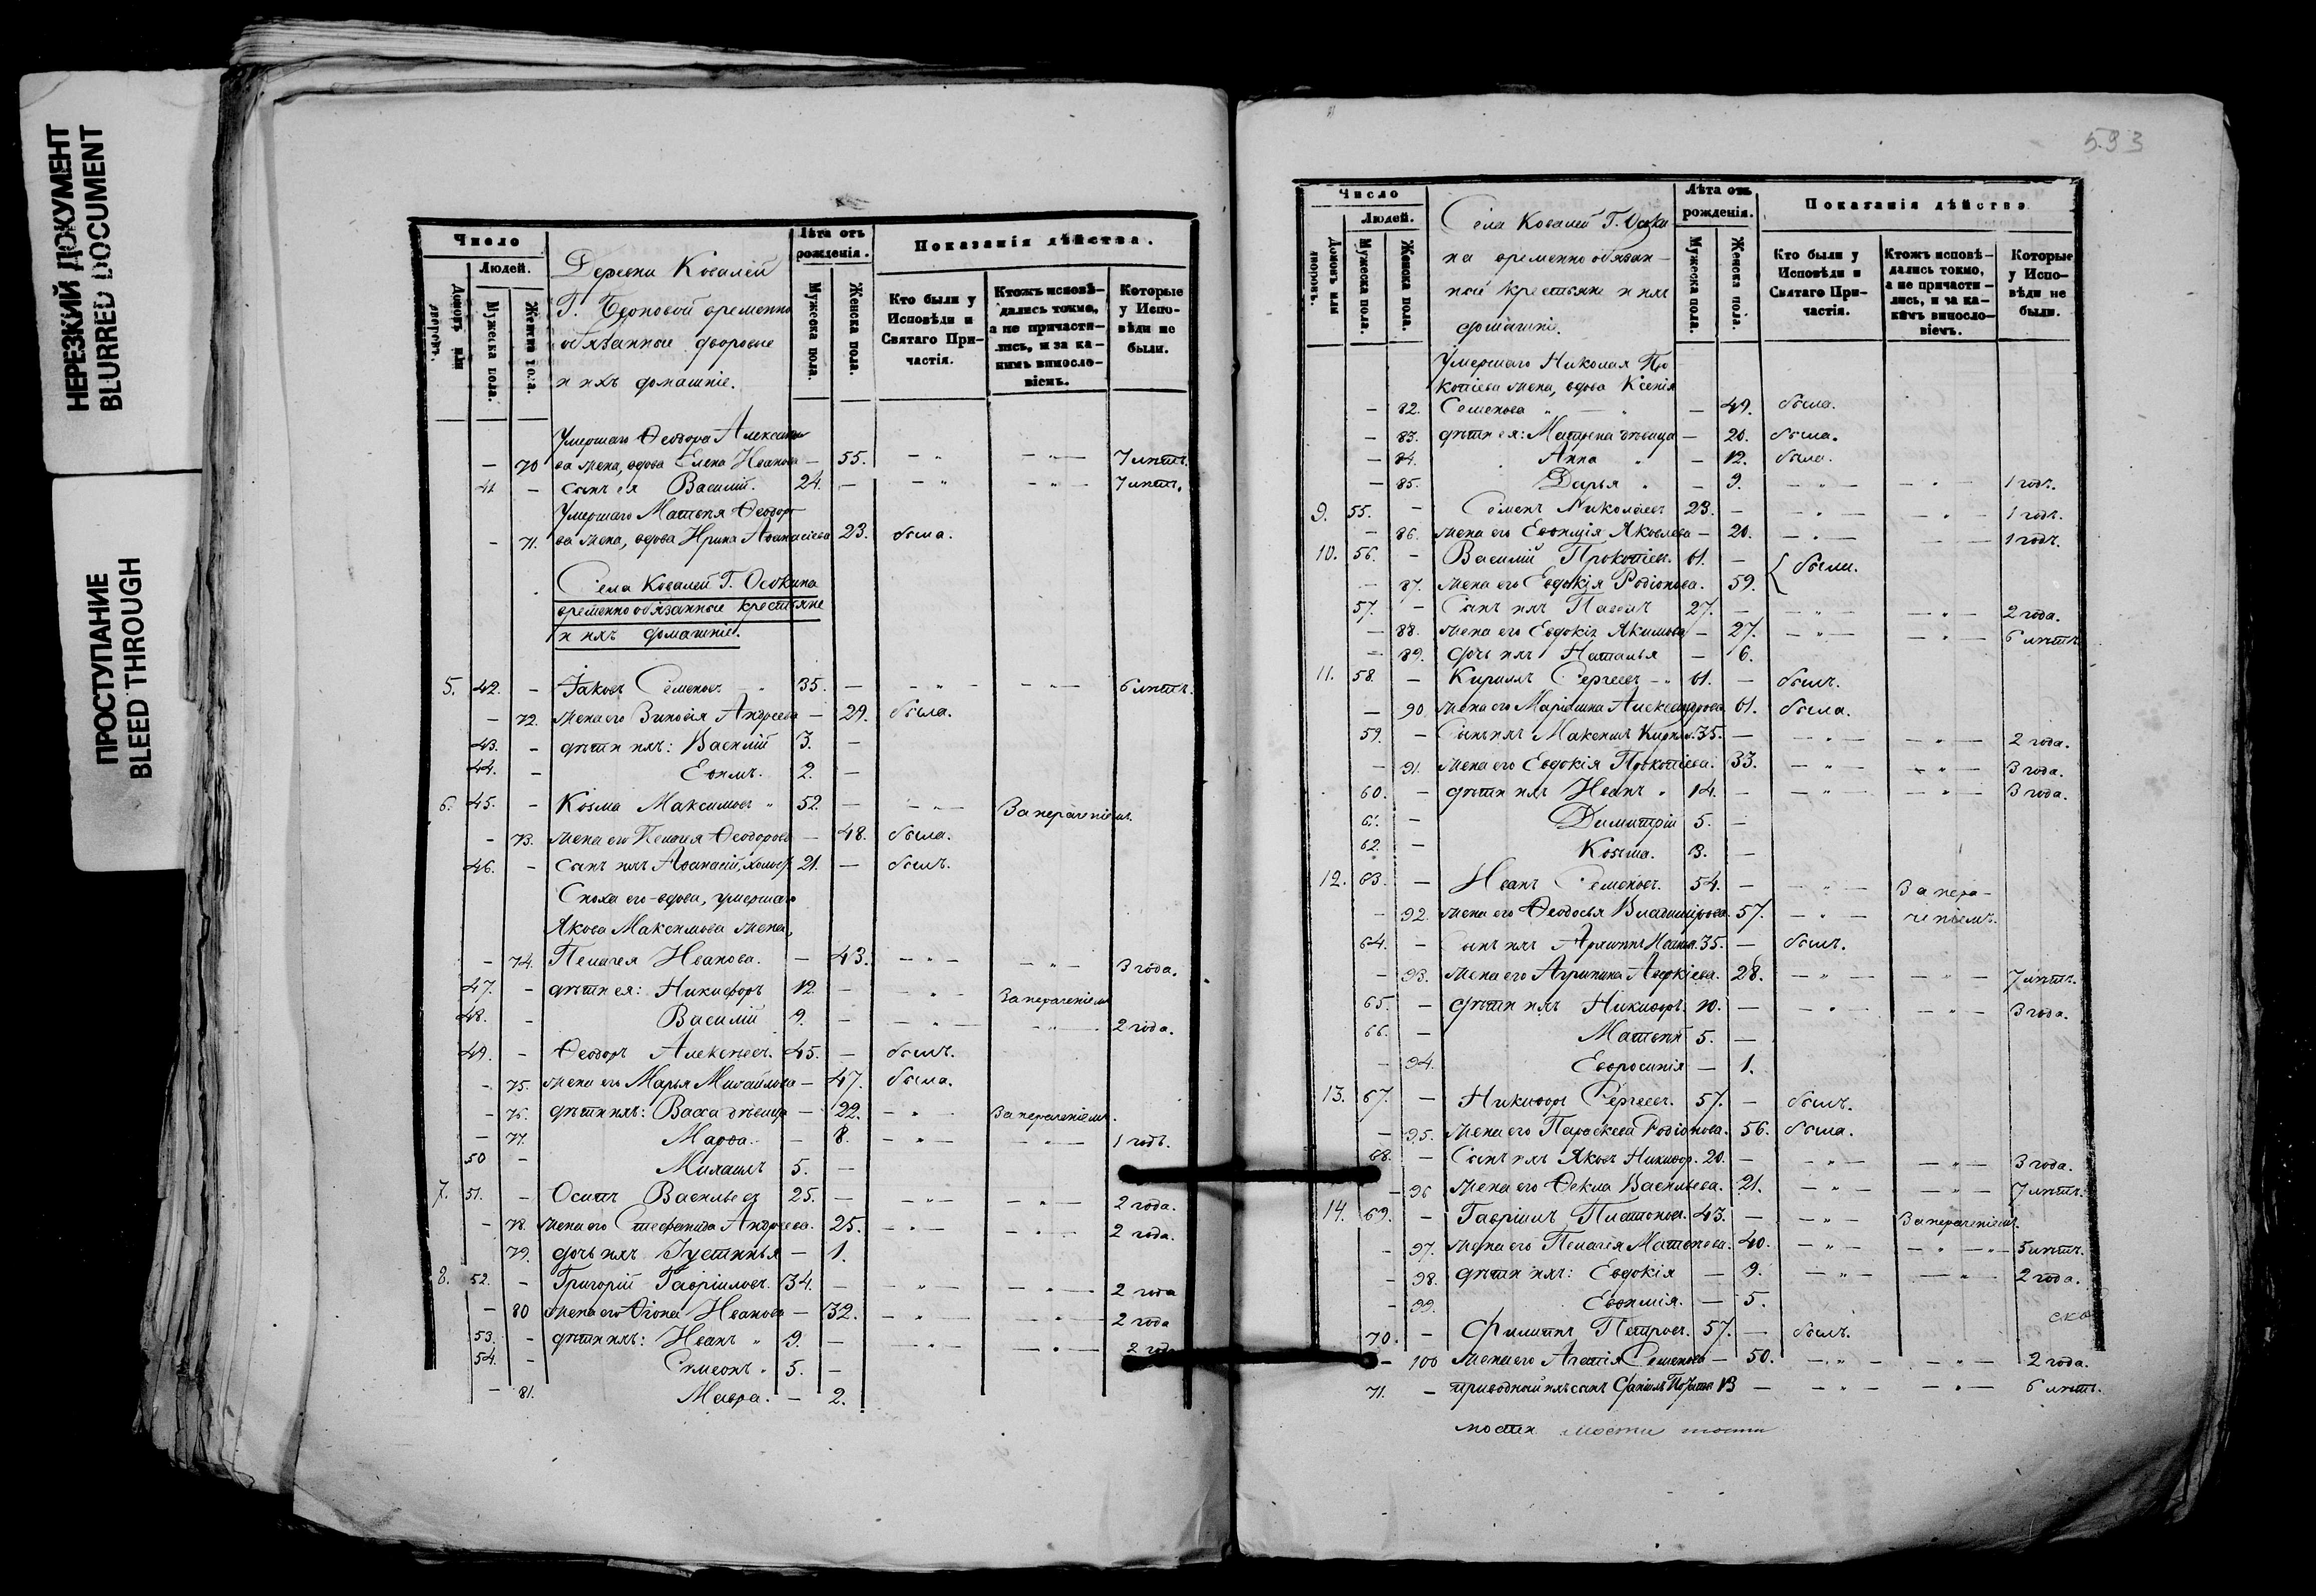 НЕРЕЗКИЙ ДОКУМЕНТ
BLURRED DOCUMENT
ПРОСТУПАНИЕ
BLEED THROUGH
Число
Людей.
Домовъ или дворовъ.
Мужеска пола.
Женска пола.
Деревни Ковалей
Г. временно
обязанные дворовые
и ихъ домашніе.
Лѣта отъ рожденія.
Мужеска пола.
Женска пола.
Показанія дѣйства.
Кто были у Исповѣди и Святаго Причастія.
Ктожъ исповѣдались токмо, а не причастились, и за какимъ винословіемъ.
Которые у Исповѣди не были.
Умершаго Ѳеодора Алексѣе
— 70 ва жена, вдова Елена Иванова — 55. — „ — „ — 7 лѣтъ.
41 — сынъ ея Василій. 24. — — „ — „ — 7 лѣтъ.
Умершаго Матвѣя Ѳеодоро
— 71. ва жена, вдова Ирина Аѳанасіева 23. была.
Села Ковалей Г. Осокина
временнообязанные крестьяне
и ихъ домашніе.
5. 42. — Іаковъ Семеновъ „ 35. — — „ — — „ — 6 лѣтъ.
— 72. жена его Зиновія Андреева — 29. была.
43. — дѣти ихъ: Василій 3. —
44. — Евѳимъ. 2. —
6. 45. — Козма Максимовъ „ 52. — — „ — За нераченіемъ.
— 73. жена его Пелагея Ѳеодорова — 48. была.
46. — сынъ ихъ Аѳанасій, холост. 21. — былъ.
Сноха его-вдова, умершаго
Якова Максимова жена,
— 74. Пелагея Иванова. — 43. — „ — — „ — 3 года.
47. — дѣти ея: Никифоръ 12. — „ — За нераченіемъ
48. — Василій 9. — — „ — „ — 2 года.
49. — Ѳеодоръ Алексѣевъ. 45. — былъ.
— 75. жена его Марья Михайлова — 47. была.
— 76. дѣти ихъ: Васса дѣвица — 22. — „ — За нераченіемъ.
— 77. Марѳа. — 8. — „ — — „ — 1 годъ.
50 — Михаилъ 5. —
7. 51. — Осипъ Васильевъ 25. — — „ — — „ — 2 года.
— 78. жена его Стефанида Андреева. 25. — „ — — „ — 2 года.
79. дочь ихъ Іустинья — 1.
8. 52. — Григорій Гавріиловъ. 34. — „ — — „ — 2 года
— 80 жена его Ѳіона Иванова — 32. — „ — — „ — 2 года
53. — дѣти ихъ: Иванъ „ 9. — — „ — — „ — 2 года
54. — Симеонъ „ 5. —
— 81. Мавра. — 2.
593
Число
Людей.
Домовъ или дворовъ.
Мужеска пола.
Женска пола.
Села Ковалей Г. Осоки
на временно обязан-
ные крестьяне и ихъ
домашніе.
Лѣта отъ рожденія.
Мужеска пола.
Женска пола.
Показанія дѣйства
Кто были у Исповѣди и Святаго Причастія.
Ктожъ исповѣдались токмо, а не причастились, и за какимъ винословіемъ.
Которые у Исповѣди не были.
Умершаго Николая Про
копіева жена, вдова Ксенія
— 82. Семенова „ — „ — 49. была.
— 83. дѣти ея: Матрена дѣвица — 20. была.
— 84. Анна „ — 12. была.
— 85. Дарья „ — 9. — „ — — „ — 1 годъ.
9. 55. — Семенъ Николаевъ 23. — — „ — — „ — 1 годъ.
— 86. жена его Евѳимія Яковлева — 20. — „ — — „ — 1 годъ.
10. 56. — Василій Прокопіевъ. 61. — { были.
— 87. жена его Евдокія Родіонова. 59.
57. — Сынъ ихъ Павелъ 27. — — „ — — „ — 2 года.
— 88. жена его Евдокія Якимова — 27. — „ — — „ — 6 лѣтъ
— 89. дочь ихъ Наталья — 6.
11. 58. — Кириллъ Сергеевъ — „ 61. — былъ.
— 90 жена его Маріамна Александрова 61. была.
59. — Сынъ ихъ Максимъ Кирил. 35. — — „ — — „ — 2 года.
— 91. жена его Евдокія Прокопіева. 33. — „ — — „ — 3 года.
60. — дѣти ихъ Иванъ „ 14. — — „ — — „ — 3 года.
61. — Димитрій 5. —
62. — Козьма. 3. —
12. 63. — Иванъ Семеновъ. 54. — — „ — За нера-
— 92. жена его Ѳеодосья Владимірова. 57. — „ — ченіемъ.
64. — Сынъ ихъ Архиппъ Иванов. 35. — былъ.
— 93. жена его Агрипина Авдокіева. 28. — „ — — „ — 7 лѣтъ.
65. — дѣти ихъ Никифоръ. 10. — — „ — — „ — 3 года.
66. — Матвѣй 5. —
— 94. Евфросинія — 1.
13. 67. — Никифоръ Сергеевъ. 57. — былъ.
— 95. жена его Параскева Родіонова. 56. была.
68. — Сынъ ихъ Яковъ Никифор. 20. — — „ — — „ — 3 года.
— 96 жена его Ѳекла Васильева. 21. — „ — — „ — 7 лѣтъ.
14. 69. — Гавріилъ Платоновъ. 43. — — „ — За нераченіемъ.
— 97. жена его Пелагея Матвѣева. 40. — „ — — „ — „ — 5 лѣтъ.
— 98. дѣти ихъ: Евдокія — 9. — „ — — „ — 2 года.
— 99. Евѳимія. — 5.
70. — Филиппъ Петровъ. 57. — былъ.
— 100 жена его Агаѳія Семенова — 50. — „ — — „ — 2 года.
71. — приводный ихъ сынъ 13 — — „ — — „ — 6 лѣтъ.
мости мости мости